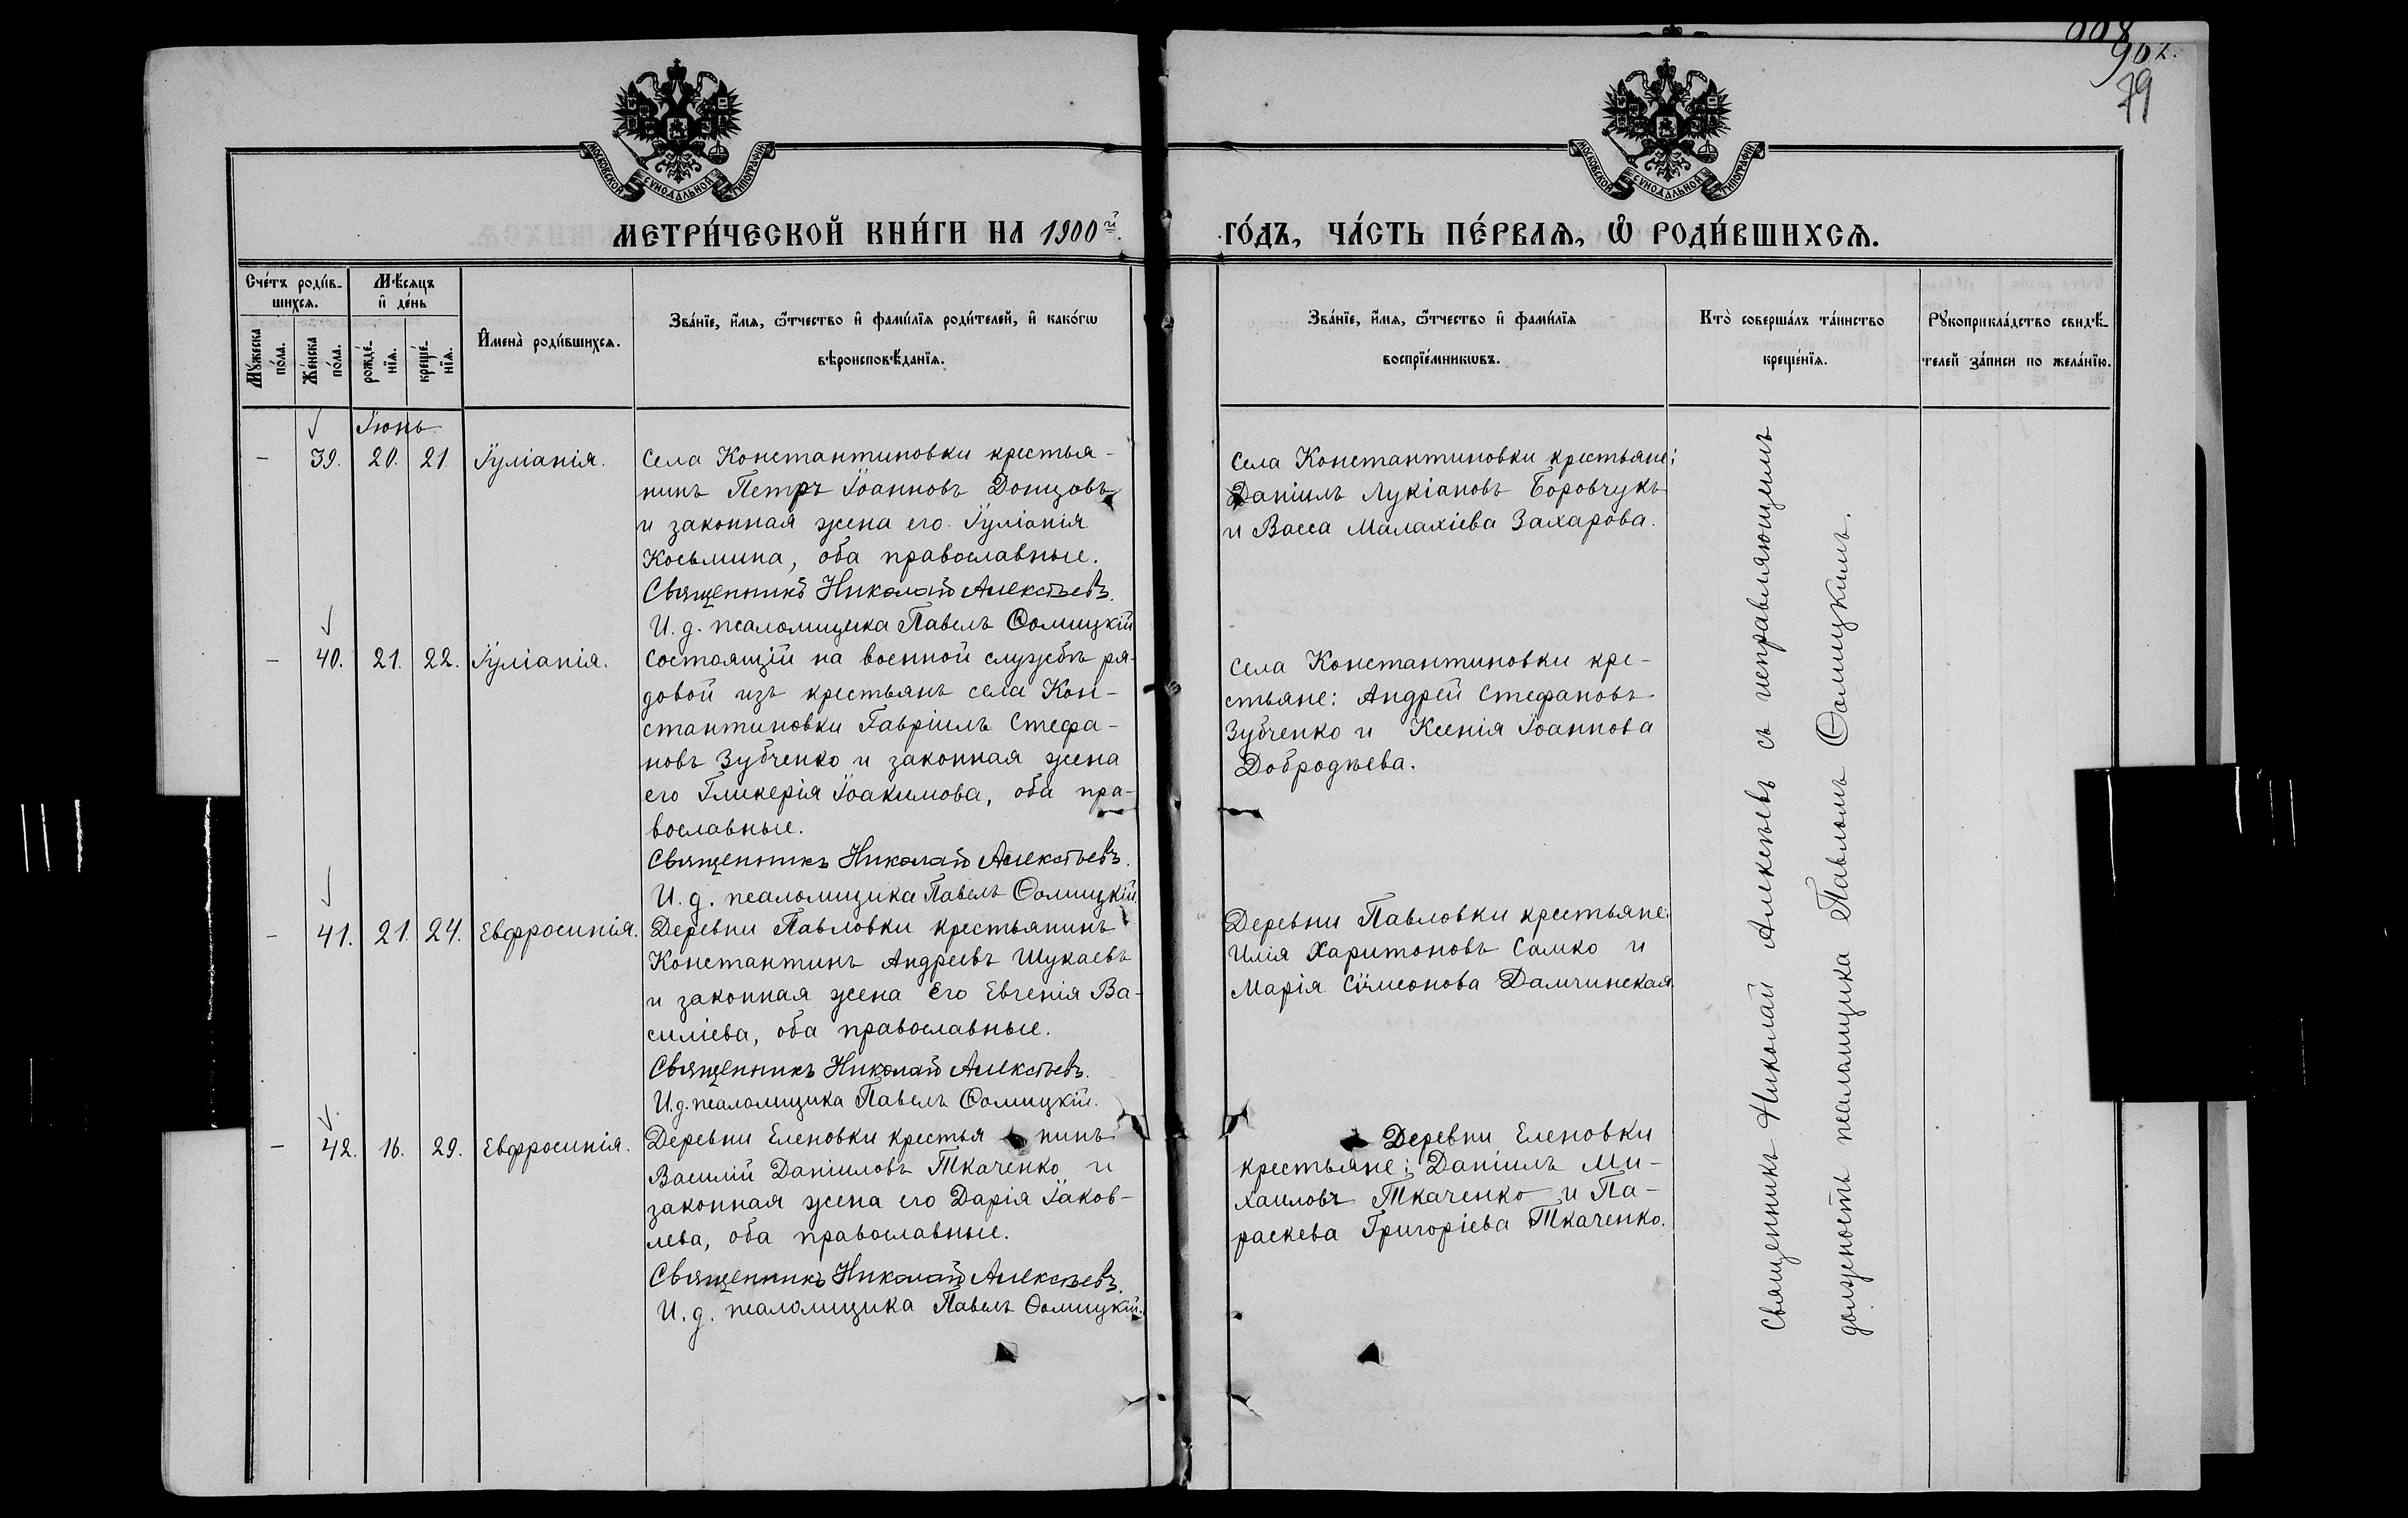 908
902.
79
МОСКОВСКОЙ СѴНОДАЛЬНОЙ ТИПОГРАФІИ
МОСКОВСКОЙ СѴНОДАЛЬНОЙ ТИПОГРАФІИ
МЕТРИ́ЧЕСКОЙ КНИ́ГИ НА 1900й
ГО́ДЪ, ЧА́СТЬ ПЕ́РВАѦ, Ѡ҆ РОДИ́ВШИХСѦ.
Сче́тъ роди́в-
шихсѧ.
Мꙋ́жеска по́ла.
Же́нска по́ла.
Мѣ́сѧцъ
и҆ де́нь
рожде́-
нїѧ.
креще́-
нїѧ.
И҆мена̀ роди́вшихсѧ.
Зва́нїе, и҆́мѧ, ѻ҆́тчество и҆ фами́лїѧ роди́телей, и҆ како́гѡ
вѣроисповѣ́данїѧ.
Зва́нїе, и҆́мѧ, ѻ҆́тчество и҆ фами́лїѧ
воспрїе́мникѡвъ.
Кто̀ соверша́лъ та́инство
креще́нїѧ.
Рꙋкоприкла́дство свидѣ́-
телей за́писи по жела́нїю.
Іюнь
– 39. 20. 21. Іуліанія.
Села Константиновки крестья-
нинъ Петръ Іоанновъ Донцовъ
и законная жена его Іуліанія
Косьмина, оба православные.
Священникъ Николай Алексѣевъ.
И. д. псаломщика Павелъ Ѳомицкій
Села Константиновки крестьяне:
Даніилъ Лукіановъ Боровчукъ
и Васса Малахіева Захарова.
– 40. 21. 22. Іуліанія.
Состоящій на военной службѣ ря-
довой изъ крестьянъ села Кон-
стантиновки Гавріилъ Стефа-
новъ Зубченко и законная жена
его Гликерія Іоакимова, оба пра-
вославные.
Священникъ Николай Алексѣевъ.
И. д. псаломщика Павелъ Ѳомицкій.
Села Константиновки кре-
стьяне: Андрей Стефановъ
Зубченко и Ксенія Іоаннова
Добродѣева.
– 41. 21. 24. Евфросинія.
Деревни Павловки крестьянинъ
Константинъ Андреевъ Шукаевъ
и законная жена его Евгенія Ва-
силіева, оба православные.
Священникъ Николай Алексѣевъ.
И. д. псаломщика Павелъ Ѳомицкій.
Деревни Павловки крестьяне:
Илія Харитоновъ Самко и
Марія Сѵмеонова Дамчинская.
– 42. 16. 29. Евфросинія.
Деревни Еленовки крестьянинъ
Василій Даніиловъ Ткаченко и
законная жена его Дарія Іаков-
лева, оба православные.
Священникъ Николай Алексѣевъ.
И. д. псаломщика Павелъ Ѳомицкій.
Деревни Еленовки
крестьяне: Даніилъ Ми-
хаиловъ Ткаченко и Па-
раскева Григоріева Ткаченко.
Священникъ Николай Алексѣевъ съ исправляющимъ
должность псаломщика Павломъ Ѳомицкимъ.